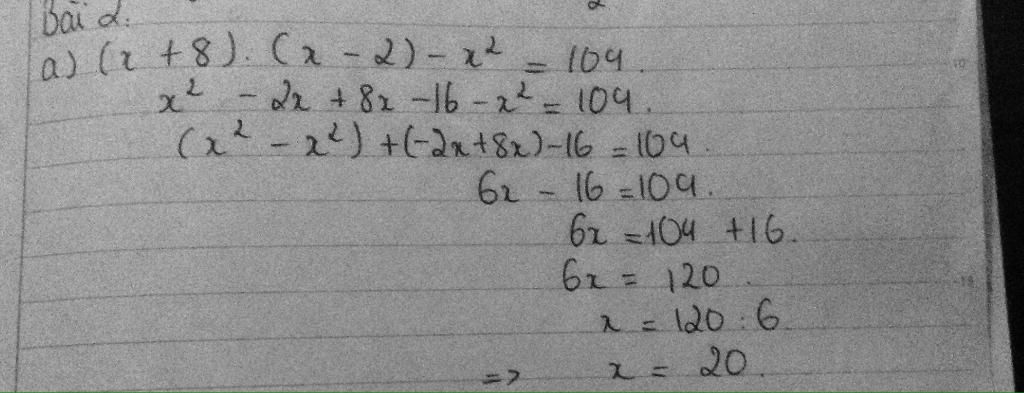 Bài 2:
a) (x + 8). (x - 2) - x² = 104.
x² - 2x + 8x - 16 - x² = 104.
(x² - x²) + (-2x + 8x) - 16 = 104.
6x - 16 = 104.
6x = 104 + 16.
6x = 120.
x = 120 : 6.
=> x = 20.